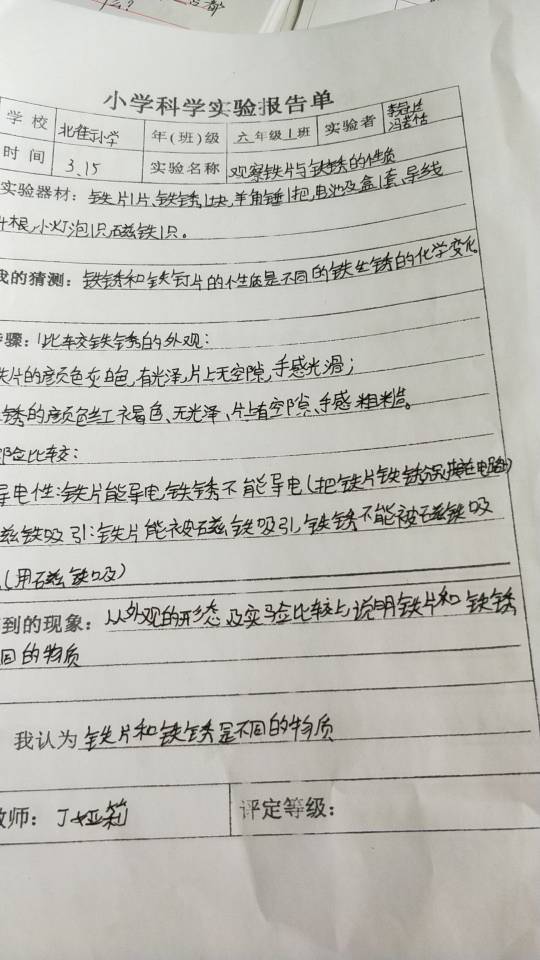 么？
小学科学实验报告单
学校 北隹小学 年(班)级 六年级1班 实验者
冯若恬
时间 3.15 实验名称 观察铁片与铁锈的性质
实验器材：铁片1片、铁锈1块,羊角锤1把,电池及盒1套、导线
根,小灯泡1只,磁铁1只。
我的猜测：铁锈和铁钉片的性质是不同的铁生锈的化学变化。
骤：1比较铁锈的外观：
铁片的颜色灰白色,有光泽,片上无空隙,手感光滑；
锈的颜色红褐色、无光泽、片上有空隙、手感粗糙。
验比较：
导电性：铁片能导电,铁锈不能导电(把铁片铁锈
磁铁吸引：铁片能被磁铁吸引,铁锈不能被磁铁吸
(用磁铁吸)
到的现象：从外观的形态及实验比较上,说明铁片和铁锈
同的物质
我认为铁片和铁锈是不同的物质
教师：丁娅莉 评定等级：